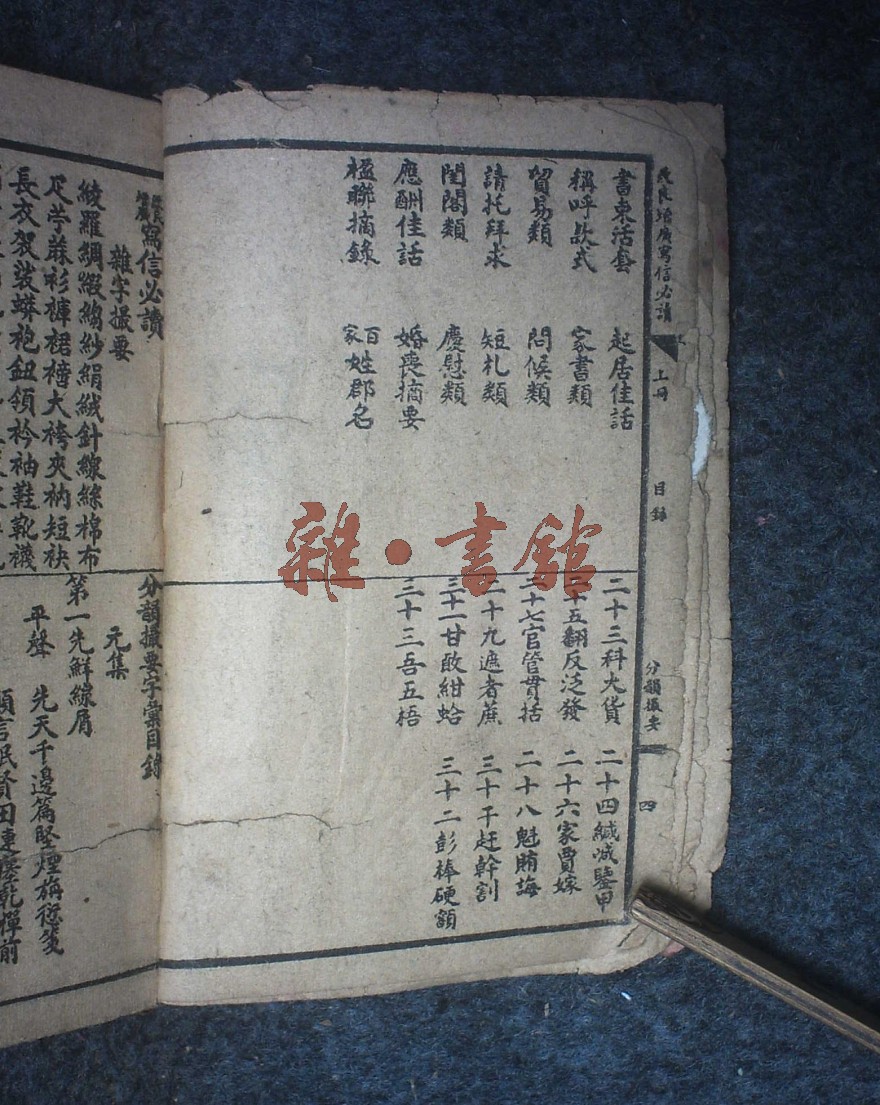 改良增廣寫信必讀
上冊
目錄
分韻撮要
四
書柬活套 起居佳話
稱呼款式 家書類
貿易類 問候類
請托拜求 短札類
閨閣類 慶慰類
應酬佳話 婚喪摘要
楹聯摘錄 百家姓郡名
二十三科火貨 二十四緘減鑒甲
二十五翻反泛發 二十六家賈嫁
二十七官管貫括 二十八魁賄誨
二十九遮者蔗 三十干赶幹割
三十一甘敢紺蛤 三十二彭棒硬額
三十三吾五悟
寫信必讀
雜字撮要
綾羅綢緞縐紗絹絨針線絲棉布
疋苧蔴衫褲裙大袴夾衲短袂
長衣袈裟蟒袍鈕領衿袖鞋靴襪
分韻撮要字彙目錄
元集
第一先鮮線屑
平聲 先天千邊篇堅煙旃愆箋
雜·書館